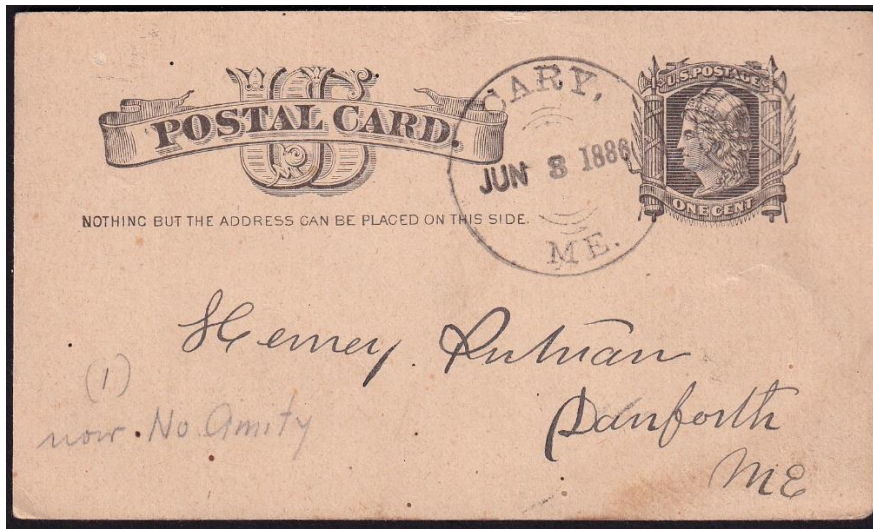 US
POSTAL CARD.
NOTHING BUT THE ADDRESS CAN BE PLACED ON THIS SIDE.
CARY,
JUN 8 1886
ME.
U.S. POSTAGE
ONE CENT
Henney Putnam
Danforth
ME
(1)
now No. Amity